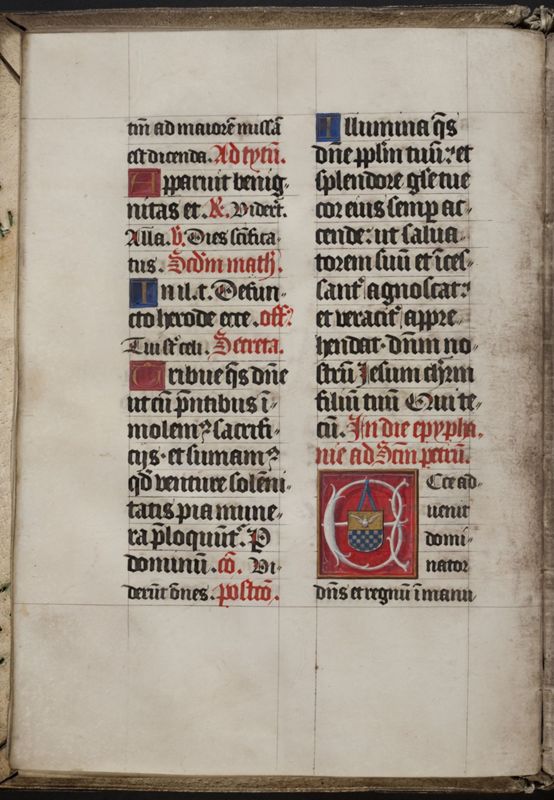 tm̄ ad maiorē missā
est dicenda. Ad tytū.
Apparuit benig-
nitas et. ℟. Viderūt.
All'a. ℣. Dies sc̄ifica-
tus. Scd'm math.
In il. t. Defun-
cto herode ecce. off.
Tui st̄ celi. Secreta.
Tribue q̄s dn̄e
ut cū p̄ntibus ī-
molem⁹ sacrifi-
cijs. et sumam⁹
qd̄ venture solēni-
tatis pia mune-
ra p̄loquūt̄. P
dominū. cō. Vi-
derūt oīnes. postcō.
Illumina q̄s
dn̄e pp̄l'm tuū: et
splendore gl̄e tue
cor eius semp̄ ac-
cende: ut salua-
torem suū et īces-
sant̄ agnoscat:
et veracit̄ appre-
hendat. dn̄m no-
strū Jesum chr̄m
filiū tuū Qui te-
cū. In die epypha-
nie ad Scm̄ petrū.
Ecce ad-
uenit
domi-
nator
dn̄s et regnū ī manu